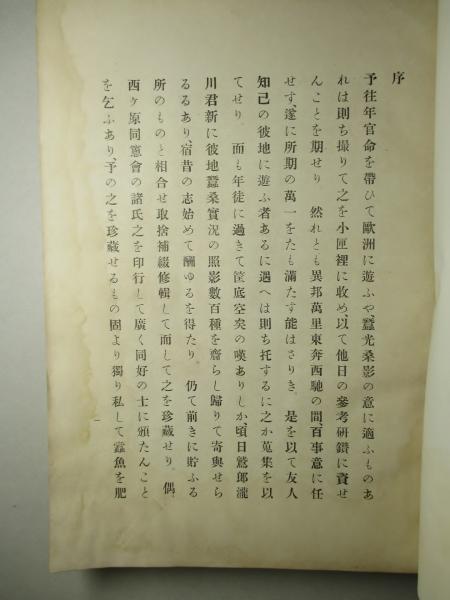 序
予往年官命を帶ひて歐洲に遊ふや、蠶光桑影の意に適ふものあ
れは則ち撮りて之を小匣裡に收め以て他日の參考研鑽に資せ
んことを期せり　然れとも異邦萬里東奔西馳の間、百事意に任
せす、遂に所期の萬一をたも滿たす能はさりき　是を以て友人
知己の彼地に遊ふ者あるに遇へは則ち托するに之か蒐集を以
てせり　而も年徒に過きて筐底空矣の嘆ありしか、頃日鷲郎瀧
川君新に彼地蠶桑實況の照影數百種を齎らし歸りて寄與せら
るゝあり、宿昔の志始めて酬ゆるを得たり　仍て前きに貯ふる
所のものと相合せ取捨補綴修輯して而して之を珍藏せり　偶
西ヶ原同窓會の諸氏之を印行して廣く同好の士に頒たんこと
を乞ふあり、予の之を珍藏せるもの固より獨り私して蠹魚を肥
一